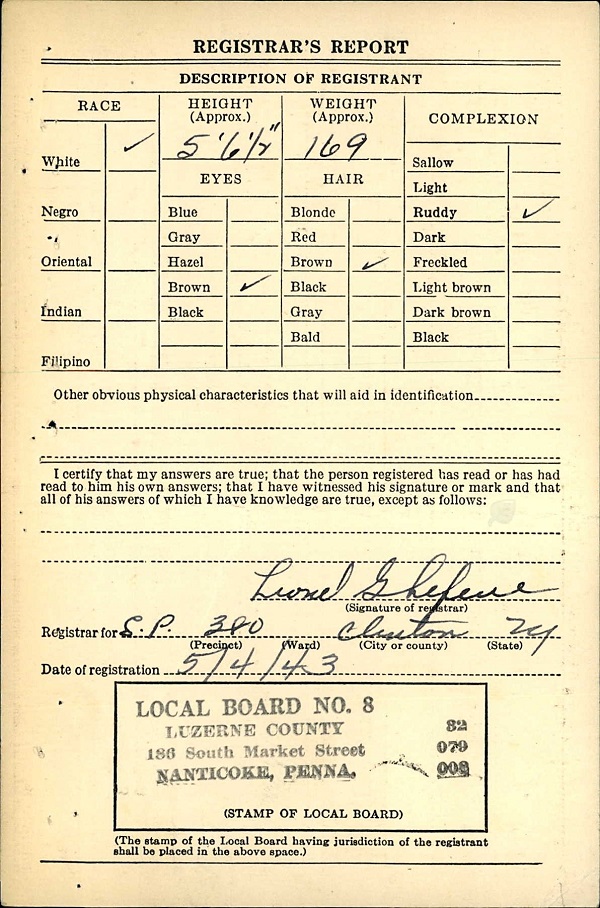 REGISTRAR'S REPORT
DESCRIPTION OF REGISTRANT
RACE
HEIGHT
(Approx.)
WEIGHT
(Approx.)
COMPLEXION
White ✓
5'6½"
169
EYES
HAIR
Sallow
Light
Negro
Blue
Blonde
Ruddy ✓
Gray
Red
Dark
Oriental
Hazel
Brown ✓
Freckled
Brown ✓
Black
Light brown
Indian
Black
Gray
Dark brown
Bald
Black
Filipino
Other obvious physical characteristics that will aid in identification
I certify that my answers are true; that the person registered has read or has had
read to him his own answers; that I have witnessed his signature or mark and that
all of his answers of which I have knowledge are true, except as follows:
Lionel G
(Signature of registrar)
Registrar for S.P. 380 Clinton NY
(Precinct) (Ward) (City or county) (State)
Date of registration 5/4/43
LOCAL BOARD NO. 8
LUZERNE COUNTY 32
136 South Market Street 079
NANTICOKE, PENNA. 008
(STAMP OF LOCAL BOARD)
(The stamp of the Local Board having jurisdiction of the registrant
shall be placed in the above space.)